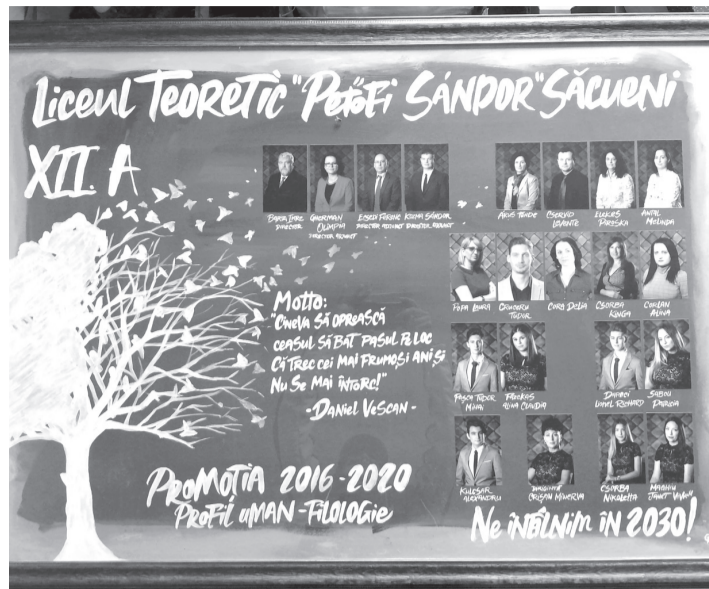 Liceul Teoretic "Petőfi Sándor" Săcueni
XII. A
Barta Imre
Director
Gherman
Olimpia
Director adjunct
Director adjunct
Kozma Sándor
Director adjunct
Ákos Tünde
Cservid
Levente
Elekes
Piroska
Antal
Melinda
Popa Laura
Tudor
Cora Delia
Csorba
Kinga
Cerlan
Alina
Motto:
"Cineva să oprească
ceasul să bat pasul pe loc
Că trec cei mai frumoși ani și
Nu se mai întorc!"
-Daniel Vescan-
Pasca Tudor
Mihai
Farkas
Alina Claudia
Lionel Richard
Sabou
Patricia
Kulcsar
Alexandru
Crișan Minerva
Csorba
Nikoletta
Promoția 2016-2020
Profil uman-Filologie
Ne întâlnim în 2030!